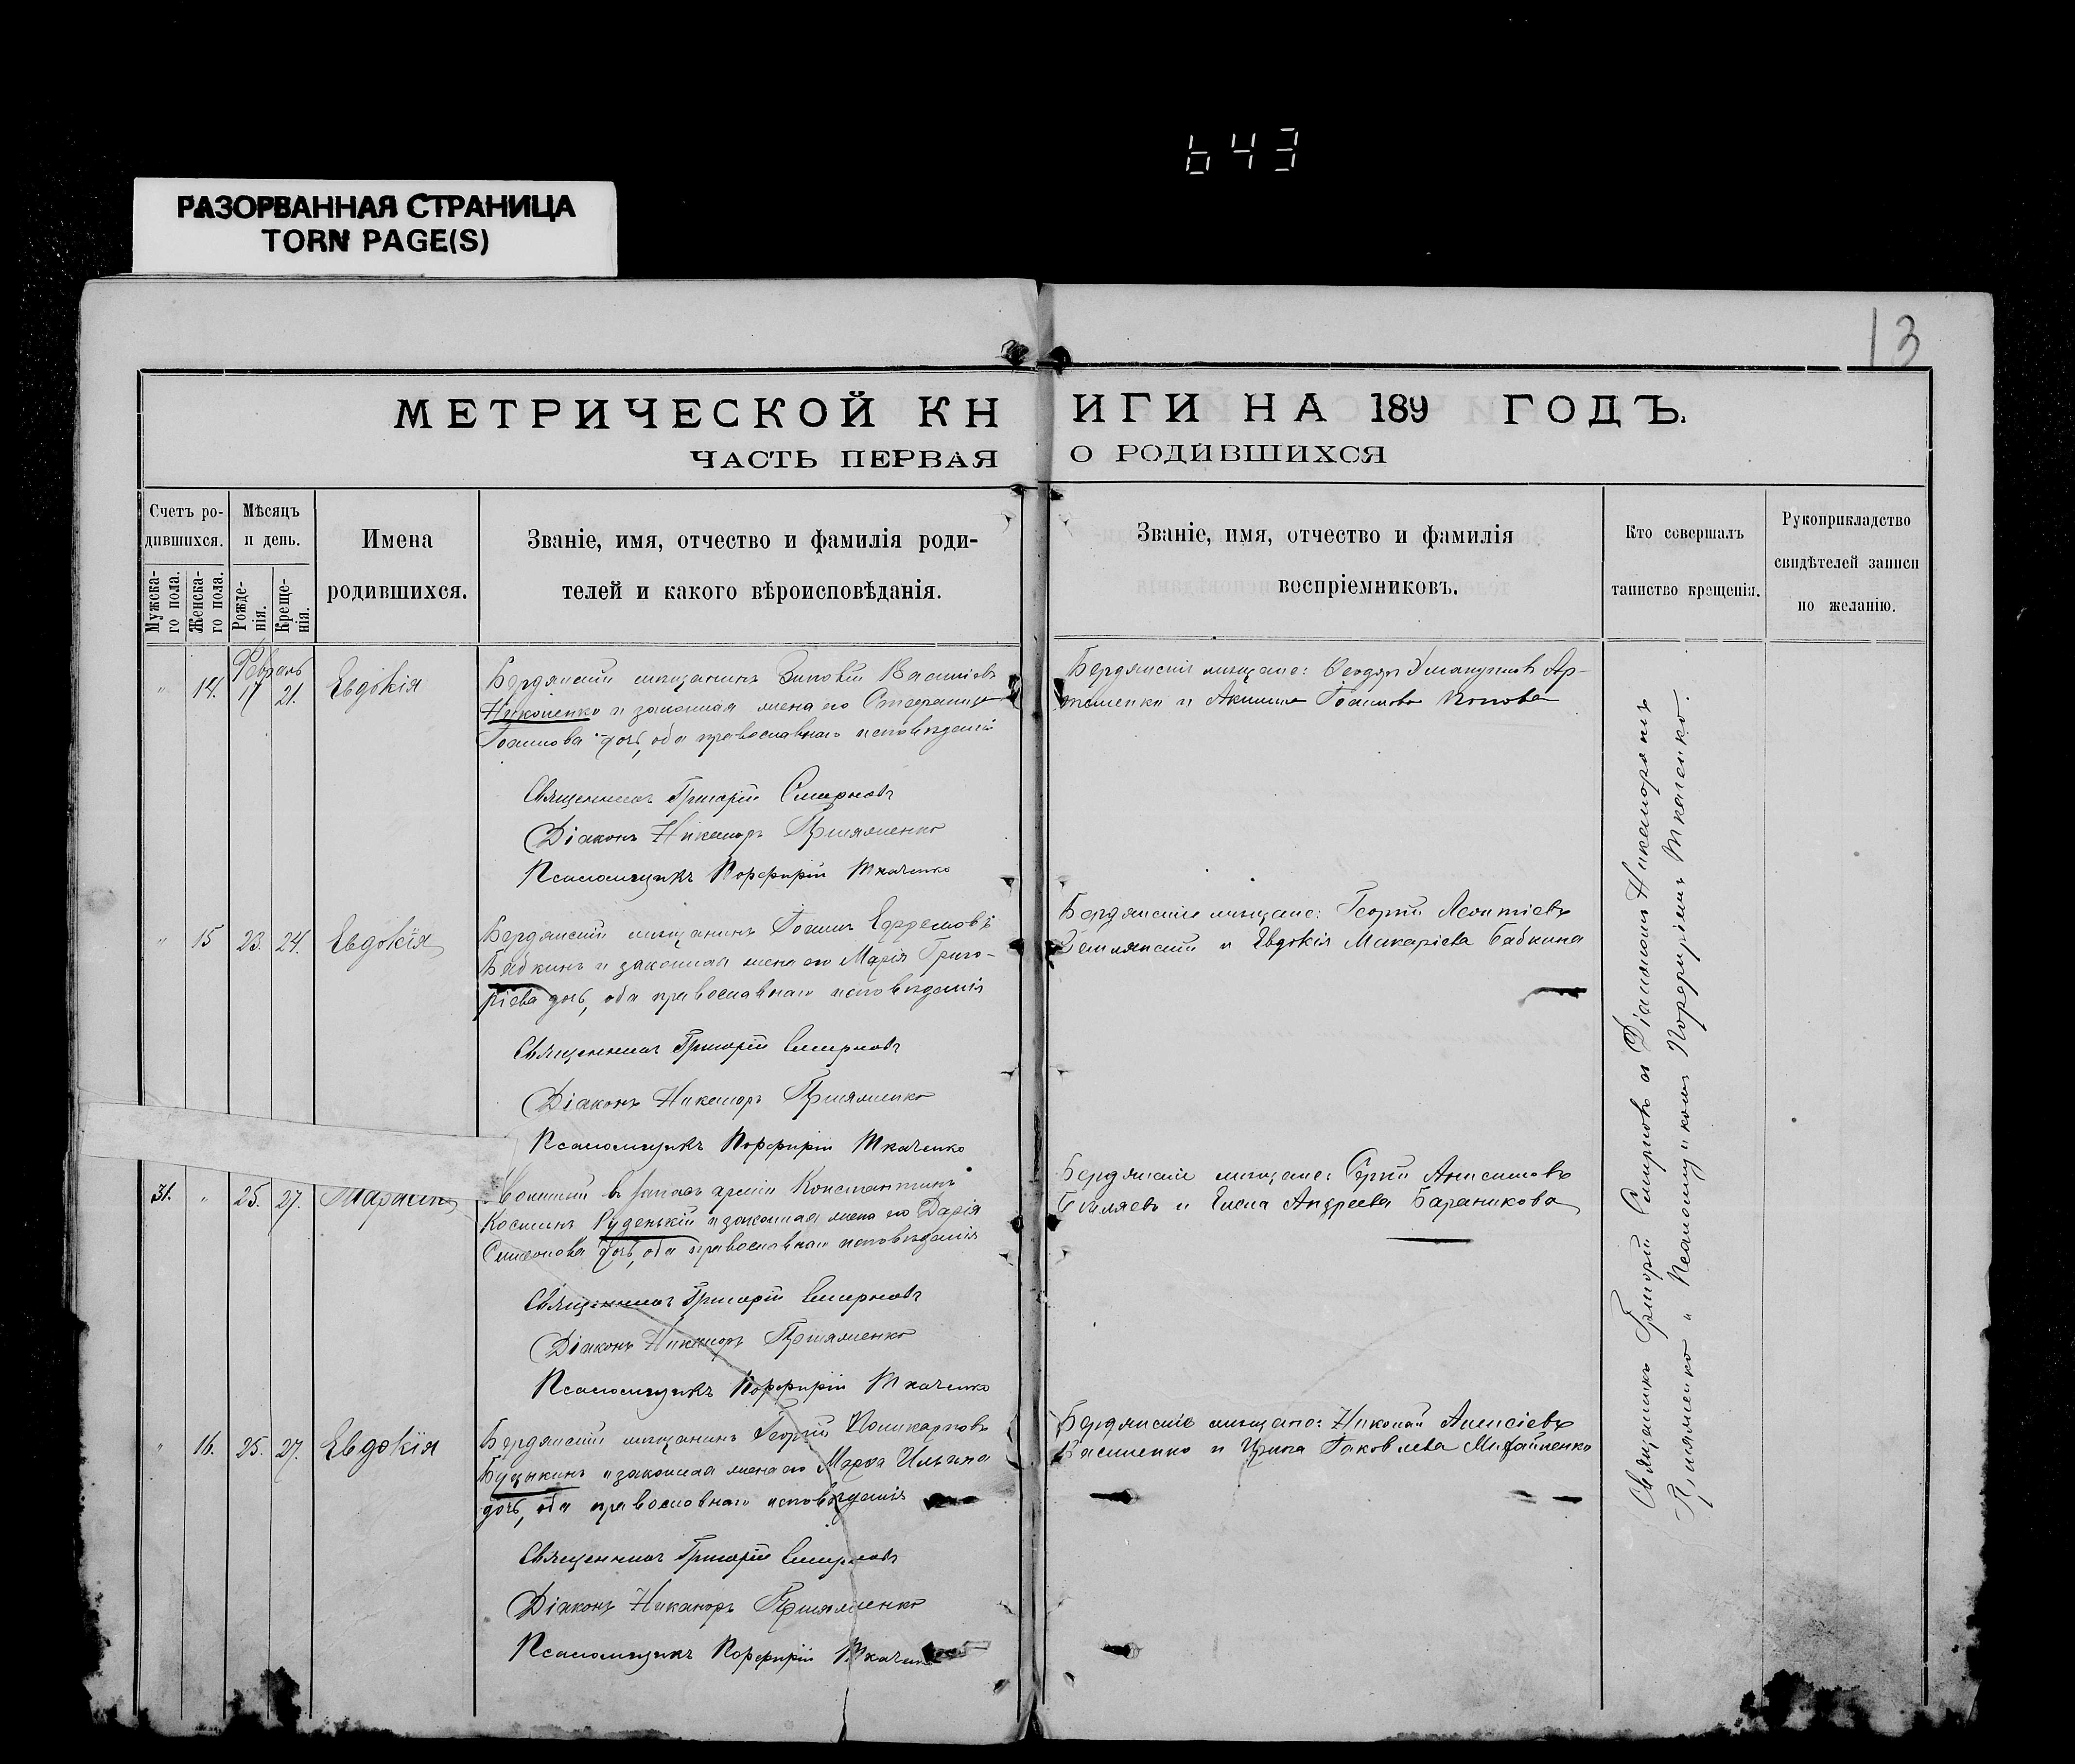 643
РАЗОРВАННАЯ СТРАНИЦА
TORN PAGE(S)
13
МЕТРИЧЕСКОЙ КНИГИ НА 189 ГОДЪ.
ЧАСТЬ ПЕРВАЯ О РОДИВШИХСЯ
Счетъ ро-
дившихся.
Мужска-
го пола.
Женска-
го пола.
Мѣсяцъ
и день.
Рожде-
нія.
Креще-
нія.
Имена
родившихся.
Званіе, имя, отчество и фамилія роди-
телей и какого вѣроисповѣданія.
Званіе, имя, отчество и фамилія
воспріемниковъ.
Кто совершалъ
таинство крещенія.
Рукоприкладство
свидѣтелей записи
по желанію.
Февраль
" 14. 17 21. Евдокія
Бердянскій мещанинъ Зиновій Васильевъ
Никоненко и законная жена его Стефанида
Іоаннова дочь, оба православнаго исповѣданія
Бердянскіе мещане: Феодоръ Ар-
теменко и Акилина Іоаннова Попова
Священникъ Григорій Смирновъ
Діаконъ Никаноръ
Псаломщикъ Порфирій Ткаченко
" 15 23. 24. Евдокія
Бердянскій мещанинъ Іоаннъ Ефремовъ
Бабкинъ и законная жена его Марія Григо-
ріева дочь, оба православнаго исповѣданія
Бердянскіе мещане: Георгій Леонтіевъ
Землянскій и Евдокія Макаріева Бабкина
Священникъ Григорій Смирновъ
Діаконъ Никаноръ
Псаломщикъ Порфирій Ткаченко
31. " 25. 27. Тарасій
въ запасъ арміи Константинъ
Косминъ Руденькій и законная жена его Дарія
Симеонова дочь, оба православнаго исповѣданія
Бердянскіе мещане: Сергій Анисимовъ
Бѣляевъ и Елена Андреева Бараникова
Священникъ Григорій Смирновъ
Діаконъ Никаноръ
Псаломщикъ Порфирій Ткаченко
" 16. 25. 27. Евдокія
Бердянскій мещанинъ Георгій Поликарповъ
Буцыкинъ и законная жена его Марѳа Ильина
дочь, оба православнаго исповѣданія
Бердянскіе мещане: Николай Алексіевъ
Василенко и Ирина Іаковлева Михайленко
Священникъ Григорій Смирновъ
Діаконъ Никаноръ
Псаломщикъ Порфирій
Священникъ Григорій Смирновъ съ Діакономъ Никаноромъ
и Псаломщикомъ Порфиріемъ Ткаченко.